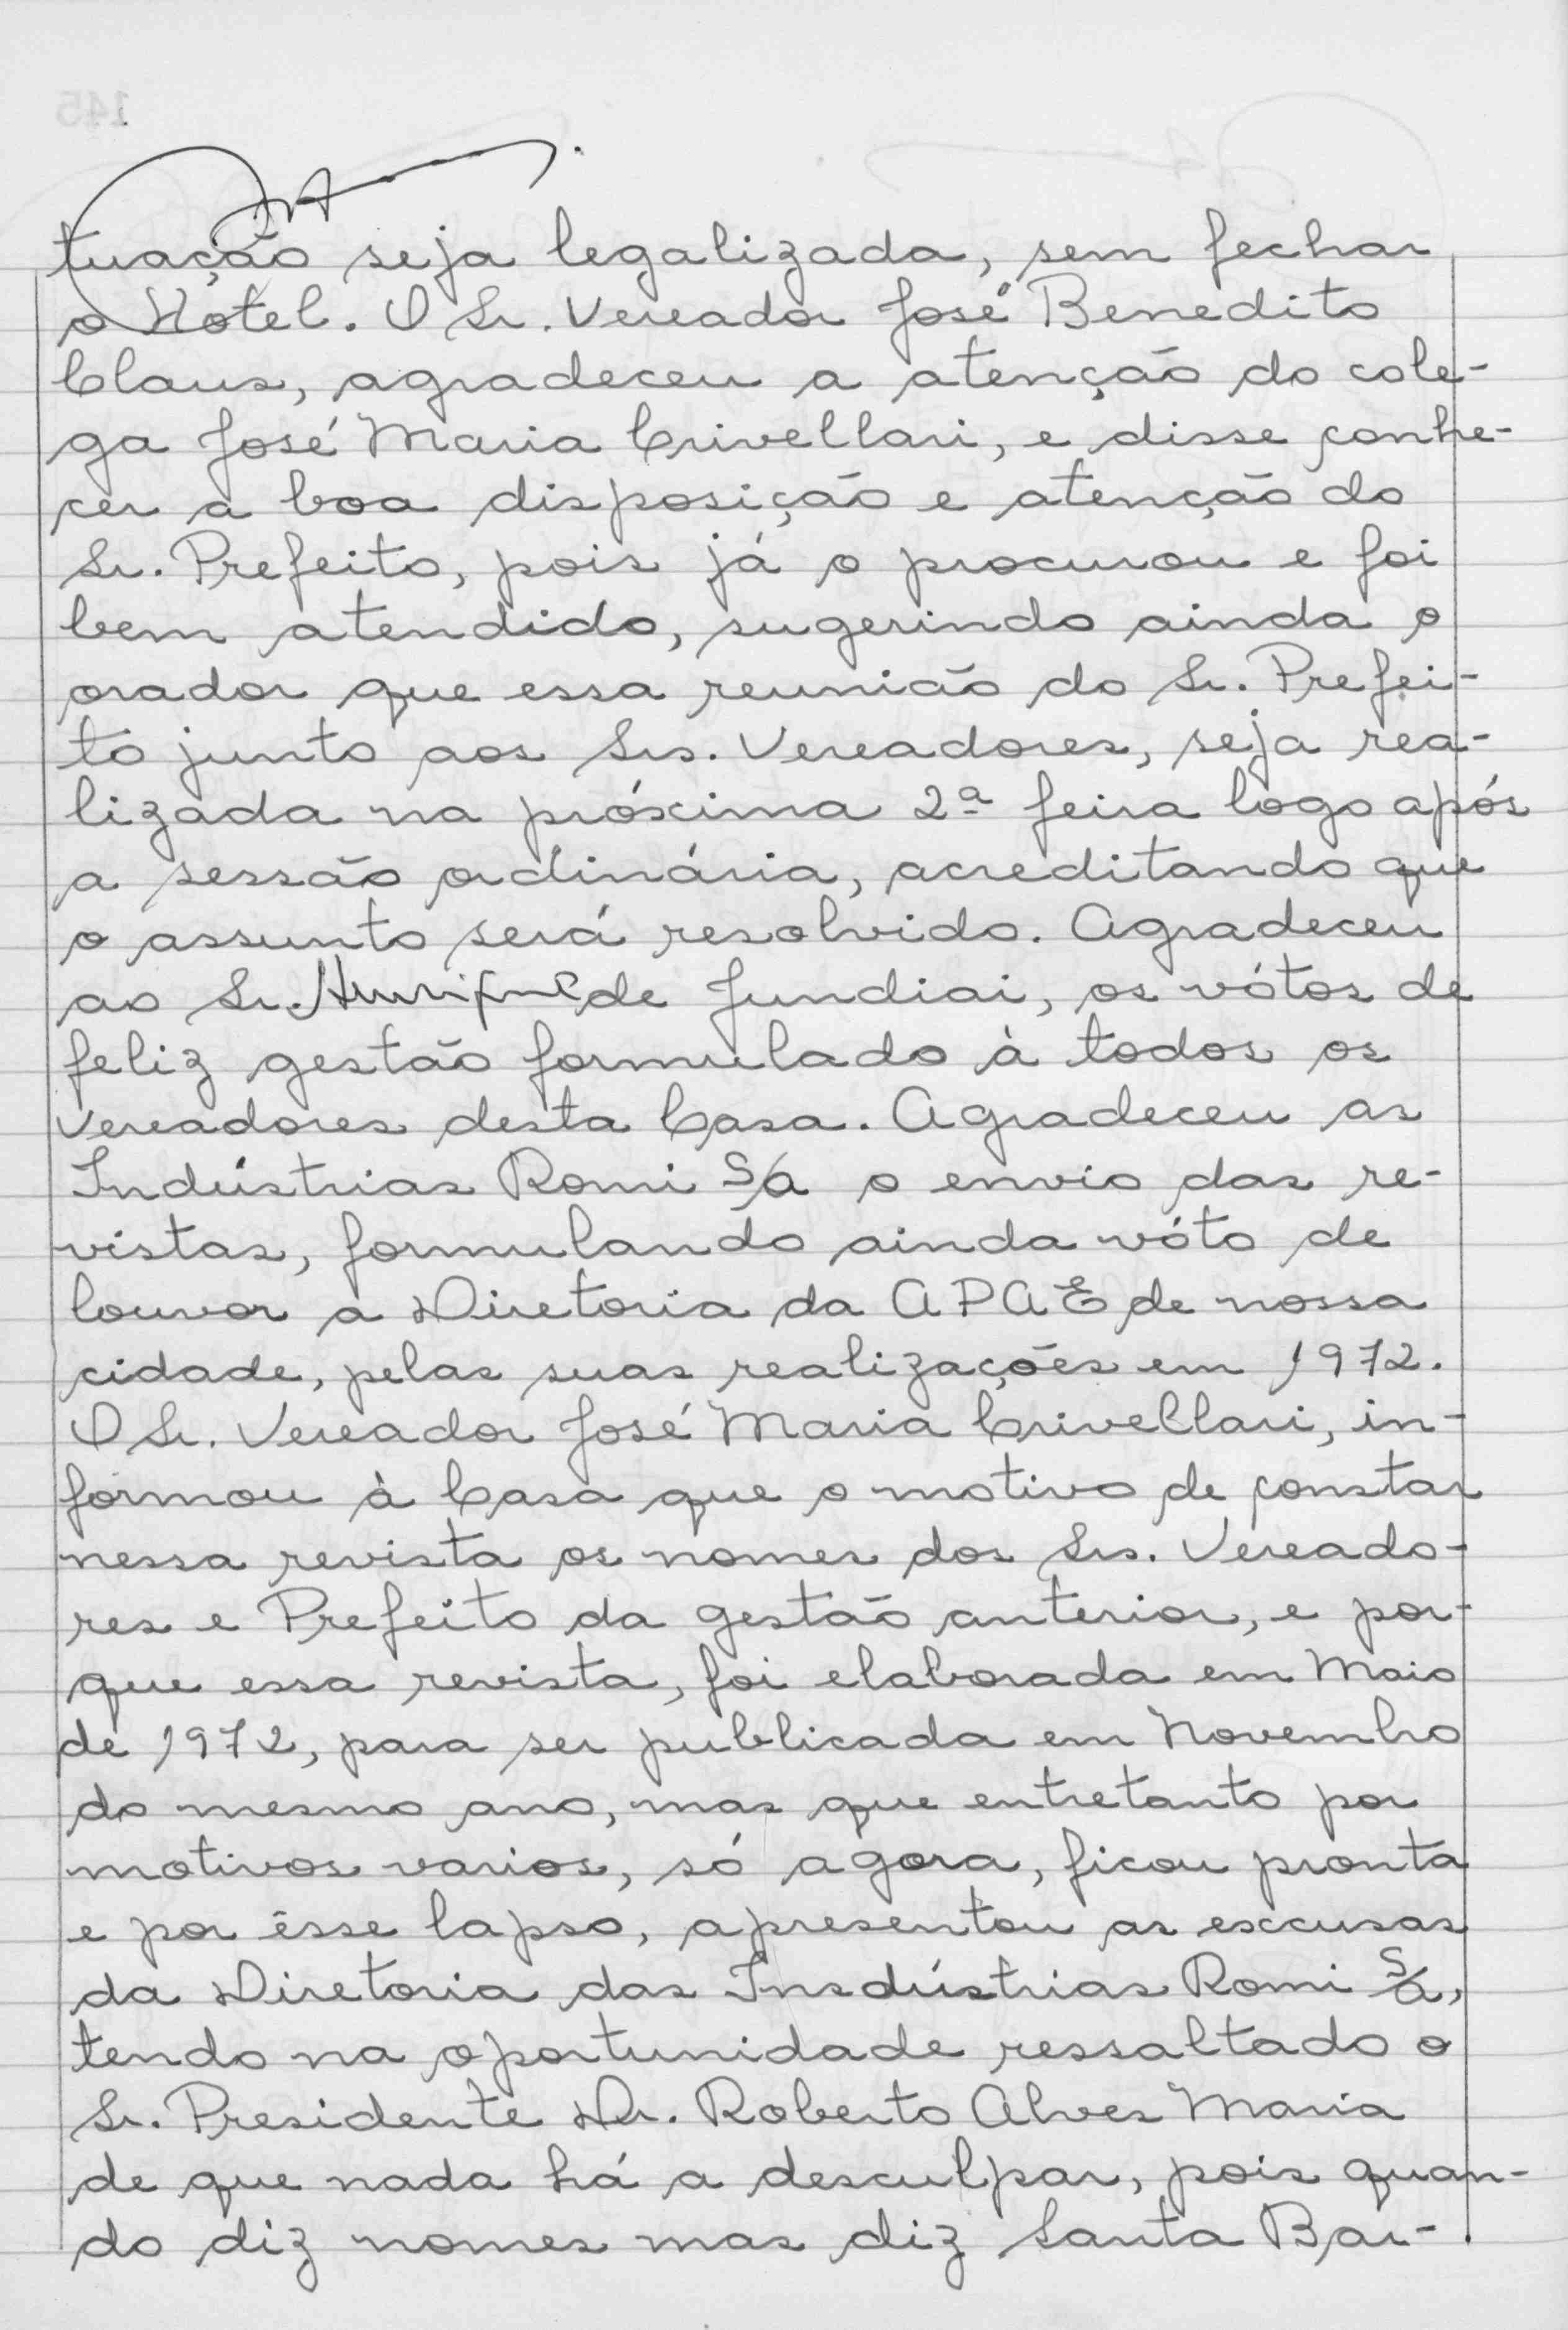 tuação seja legalizada, sem fechar
o Hotel. O Sr. Vereador José Benedito
Claus, agradeceu a atenção do cole-
ga José Maria Crivellari, e disse conhe-
cer a boa disposição e atenção do
Sr. Prefeito, pois já o procurou e foi
bem atendido, sugerindo ainda o
orador que essa reunião do Sr. Prefei-
to junto aos Srs. Vereadores, seja rea-
lizada na próxima 2ª feira logo após
a sessão ordinária, acreditando que
o assunto será resolvido. Agradeceu
ao Sr. de Jundiai, os vótos de
feliz gestão formulado à todos os
Vereadores desta Casa. Agradeceu as
Indústrias Romi S/A o envio das re-
vistas, formulando ainda vóto de
louvor a Diretoria da APAE de nossa
cidade, pelas suas realizações em 1972.
O Sr. Vereador José Maria Crivellari, in-
formou à Casa que o motivo de constar
nessa revista os nomes dos Srs. Vereado-
res e Prefeito da gestão anterior, e por-
que essa revista, foi elaborada em Maio
de 1972, para ser publicada em Novembro
do mesmo ano, mas que entretanto por
motivos varios, só agora, ficou pronta
e por êsse lapso, apresentou as escusas
da Diretoria das Insdústrias Romi S/A,
tendo na oportunidade ressaltado o
Sr. Presidente Dr. Roberto Alves Maria
de que nada há a desculpar, pois quan-
do diz nomes mas diz Santa Bar-